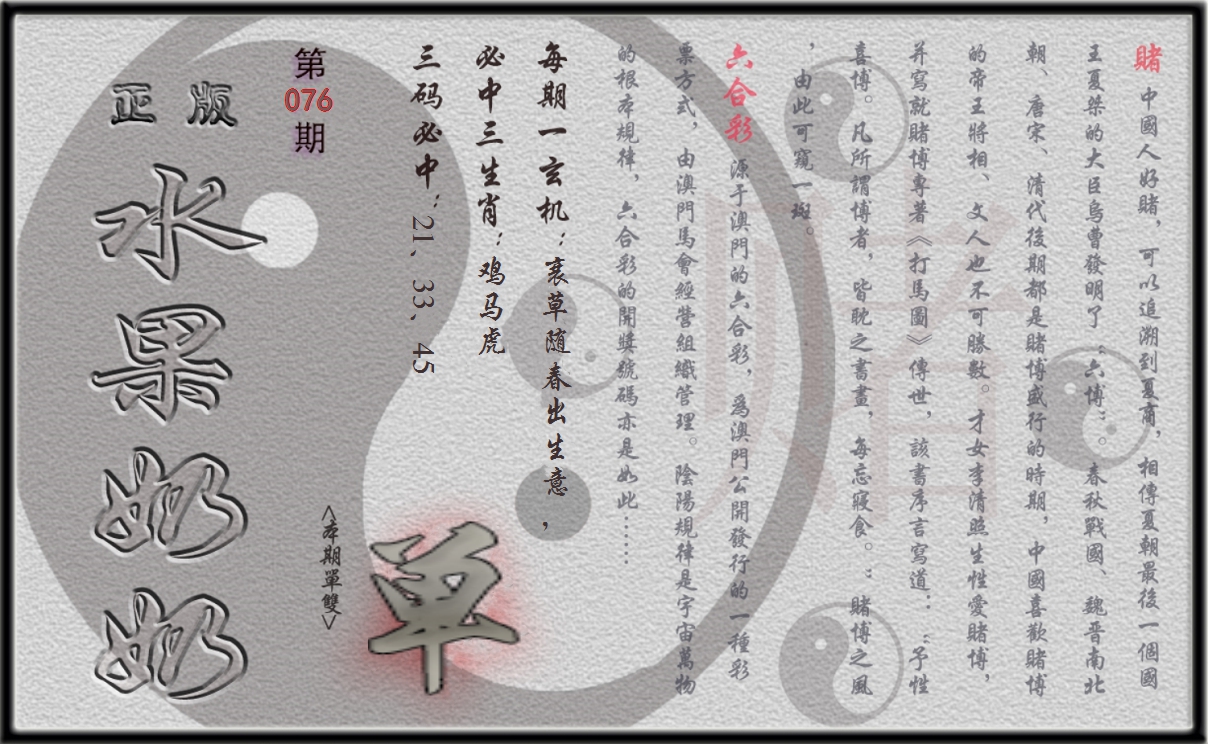 賭 中國人好賭，可以追溯到夏商，相傳夏朝最後一個國
王夏桀的大臣烏曹發明了“六博”。春秋戰國、魏晉南北
朝、唐宋、清代後期都是賭博盛行的時期，中國喜歡賭博
的帝王將相、文人也不可勝數。才女李清照生性愛賭博，
并寫就賭博專著《打馬圖》傳世，該書序言寫道：“予性
喜博。凡所謂博者，皆耽之書畫，每忘寢食。：賭博之風
，由此可窺一斑。
六合彩 源于澳門的六合彩，爲澳門公開發行的一種彩
票方式，由澳門馬會經營組織管理。陰陽規律是宇宙萬物
的根本規律，六合彩的開獎號碼亦是如此……
每期一玄机：衰草随春出生意，
必中三生肖：鸡马虎
三码必中：21、33、45
单
<本期單雙>
第
076
期
正版
水果奶奶
赌